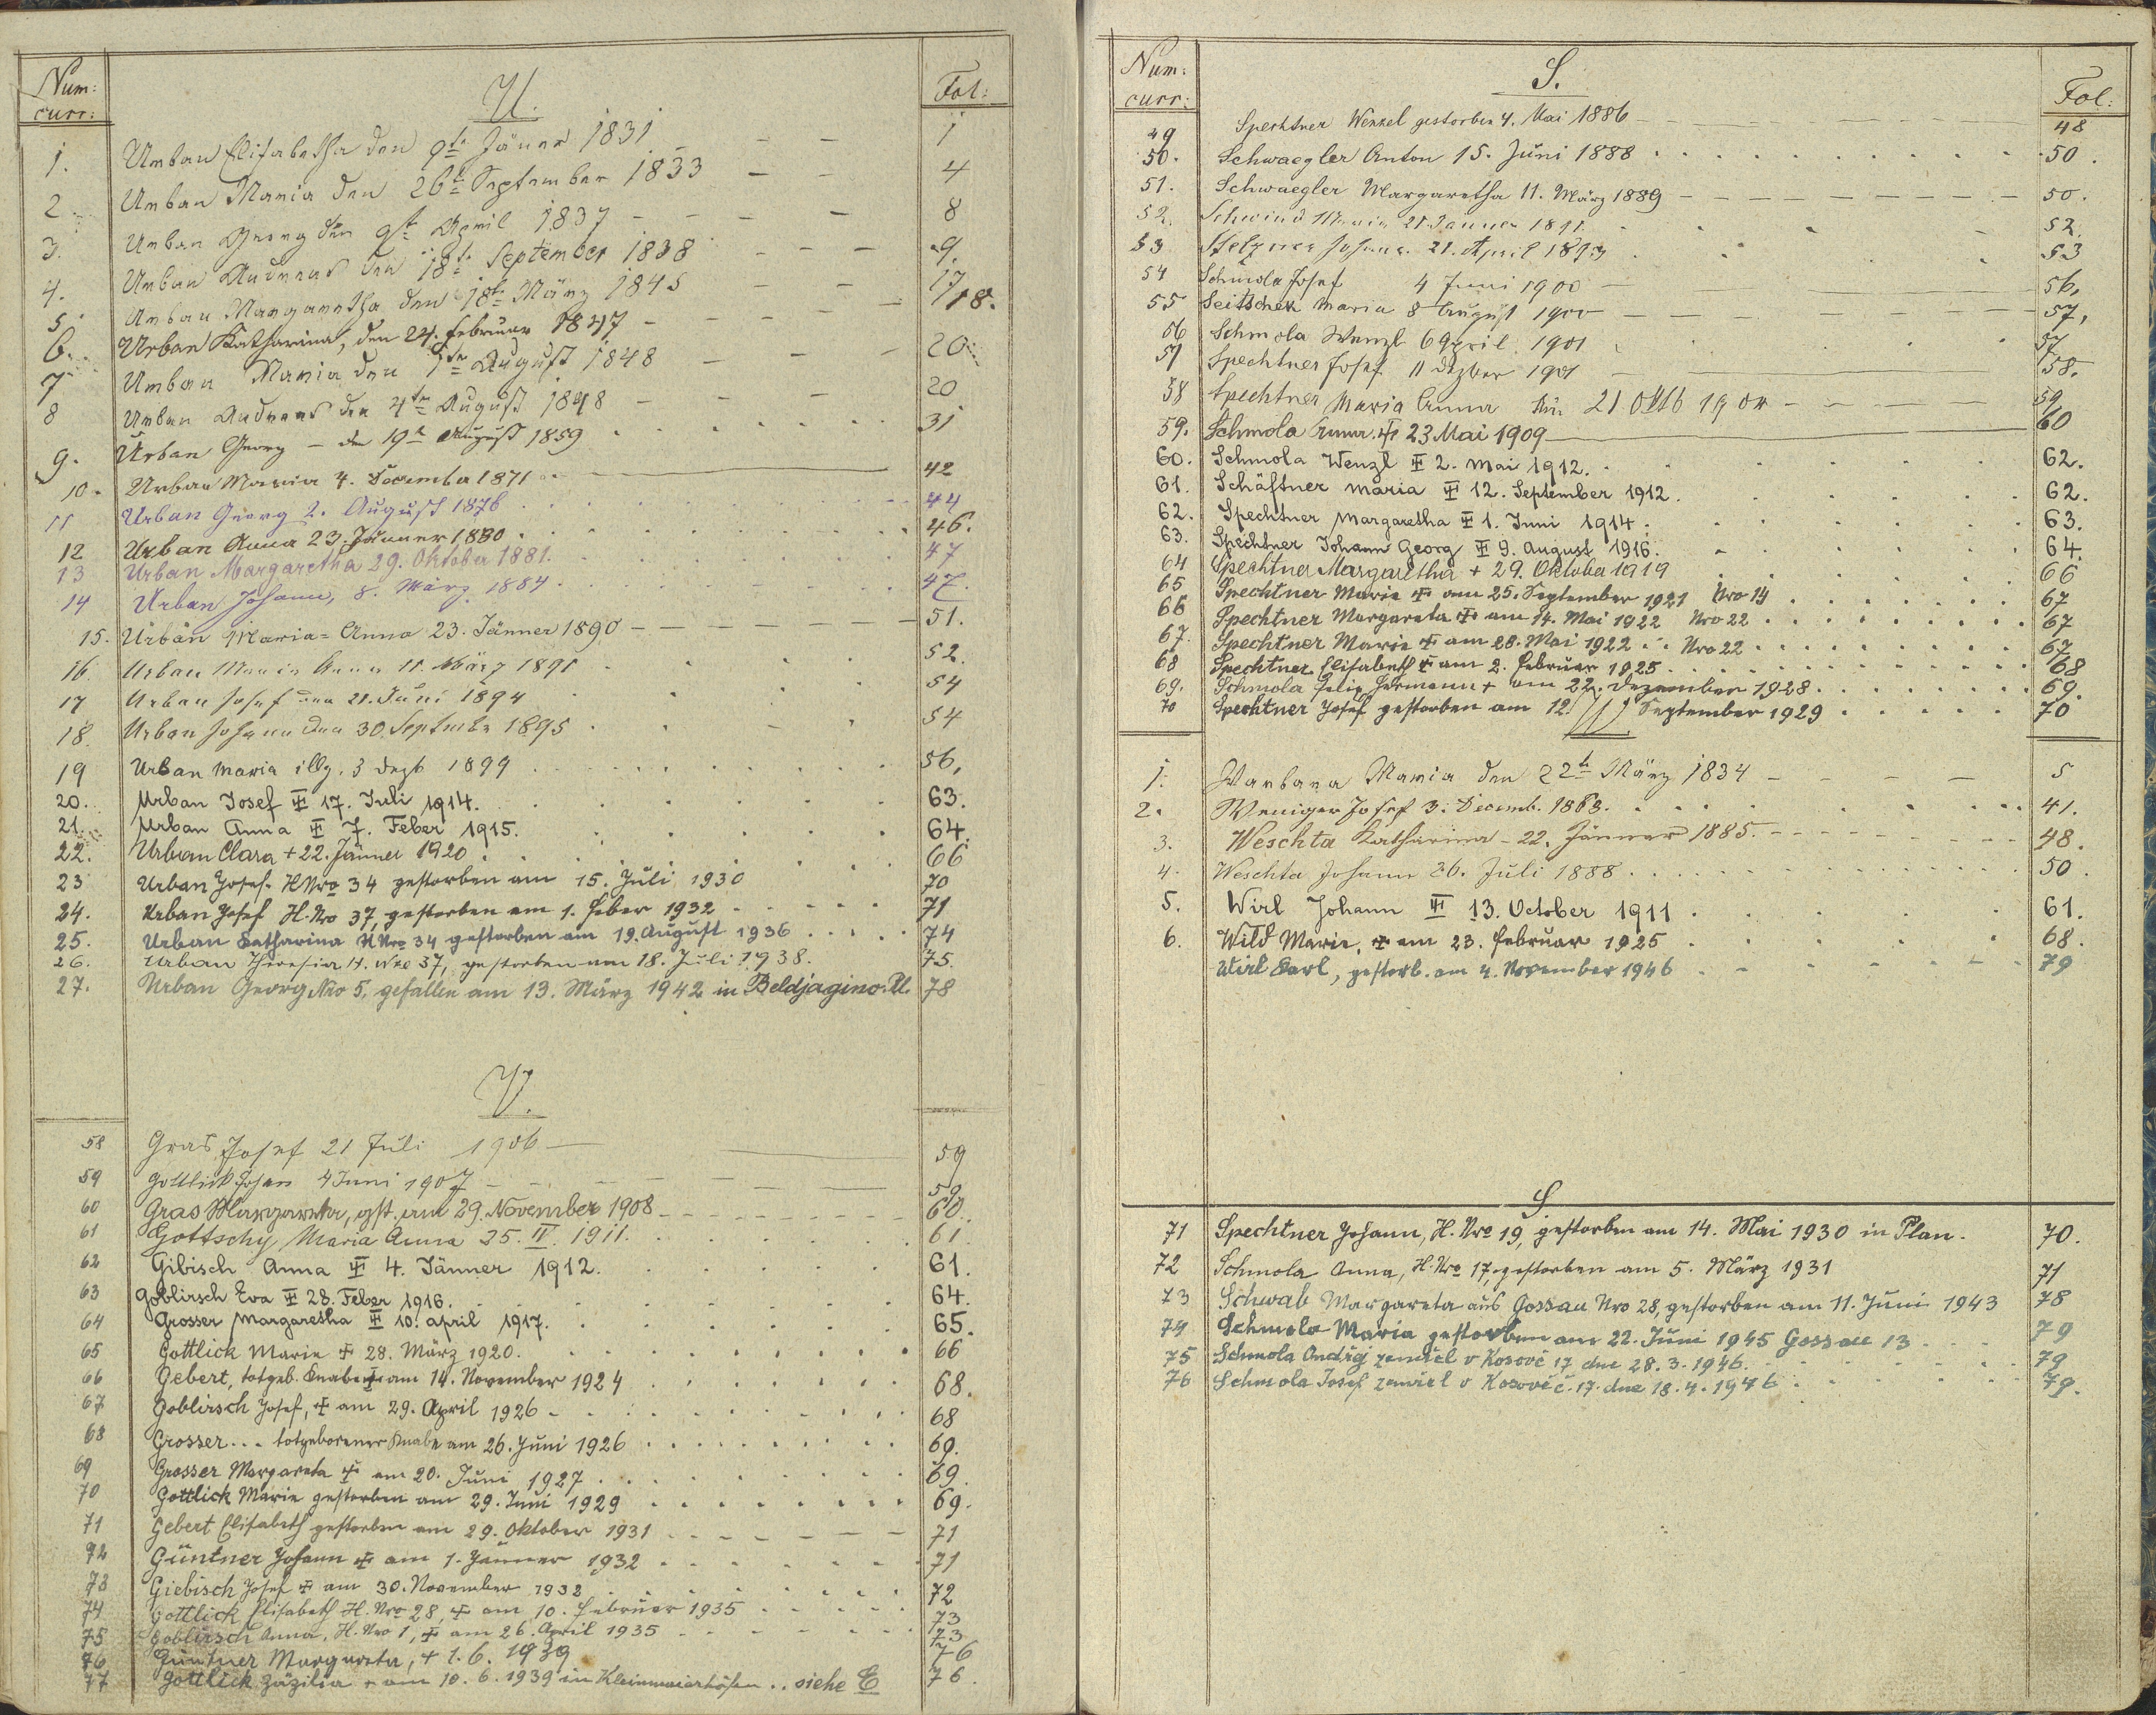 Num:
curr:
U.
Fol:
1. Urban Elisabetha den 9te Jäner 1831 - - - 1
2. Urban Maria den 26te September 1833 - - 4
3. Urban Georg den 9te April 1837 - - - - 8
4. Urban Andreas den 18te September 1838 - - - 9.
5. Urban Margaretha den 18te März 1845 - - - 17
6. Urban Katharina, den 24. Februar 1847 - - - - 18.
7 Urban Maria den 1ten August 1848 - - - 20
8 Urban Andreas den 4ten August 1848 - - - - 20
9. Urban Georg - den 19te August 1859 . . . . . . 31
10. Urban Maria 4. Dezember 1871 42
11 Urban Georg 2. August 1876 44
12 Urban Anna 23. Jänner 1880 46.
13 Urban Margaretha 29. Oktober 1881. 47
14 Urban Johann, 8. März 1884. 47.
15. Urban Maria-Anna 23. Jänner 1890 - - - - - - - 51.
16. Urban Maria Anna 11. März 1891 52.
17 Urban Josef den 21. Juni 1894 54
18. Urban Johann den 30. September 1895 54
19 Urban Maria 3 Dezb 1899 56,
20. Urban Josef 17. Juli 1914. 63.
21. Urban Anna 7. Feber 1915. 64.
22. Urban Clara + 22. Jänner 1920 66
23 Urban Josef. H Nro 34 gestorben am 15. Juli 1930 70
24. Urban Josef H. Nro 37, gestorben am 1. Feber 1932 71
25. Urban Katharina H Nro 34 gestorben am 19. August 1936 74
26. Urban Theresia H. Nro 37, gestorben am 18. Juli 1938. 75
27. Urban Georg Nro 5, gefallen am 13. März 1942 in Beldjagino. R. 78
V.
58 Gras Josef 21 Juli 1906 59
59 Gottlick Johan 4 Juni 1907 59
60 Gras Margareta, gst. am 29. November 1908 60.
61 Gottschy Maria Anna 25. II. 1911. 61.
62 Gibisch Anna 4. Jänner 1912. 61.
63 Goblirsch Eva 28. Feber 1916. 64.
64 Grosser Margaretha 10. April 1917. 65.
65 Gottlick Marie 28. März 1920. 66
66 Gebert, totgeb. Knabe am 14. November 1924 68.
67 Goblirsch Josef, am 29. April 1926 68
68 Grosser... totgeborener Knabe am 26. Juni 1926 69.
69 Grosser Margareta am 20. Juni 1927 69.
70 Gottlick Marie gestorben am 29. Juni 1929 69.
71 Gebert Elisabeth gestorben am 29. Oktober 1931 71
72 Güntner Johann am 1. Jänner 1932 71
73 Giebisch Josef am 30. November 1932 72
74 Gottlick Elisabeth H. Nro 28, am 10. Februar 1935 73
75 Goblirsch Anna, H. Nro 1, am 26. April 1935 73
76 Güntner Margareta, + 1. 6. 1939 76
77 Gottlick Zäzilia + am 10. 6. 1939 in Kleinmaierhöfen .. siehe E 76.
Num:
curr:
S.
Fol:
49 Spechtner Wenzel gestorben 4. Mai 1886 48
50. Schwaegler Anton 15. Juni 1888 50.
51. Schwaegler Margaretha 11. März 1889 50.
52. Schwind Maria 21. Jänner 1891. 52.
53 Stelzner Johann. 21. April 1893 53
54 Schmola Josef 4 Juni 1900 56,
55 Seitscheck Maria 8 August 1900 57,
56 Schmola Wenzl 6 April 1901 57
57 Spechtner Josef 11 Dezber 1901 58.
58 Spechtner Maria Anna 21 Oktb 1904 59
59. Schmola Anna. 23 Mai 1909 60
60. Schmola Wenzl 2. Mai 1912. 62.
61. Schäftner Maria 12. September 1912. 62.
62. Spechtner Margaretha 1. Juni 1914. 63.
63. Spechtner Johann Georg 9. August 1916. 64.
64 Spechtner Margaretha + 29. Oktober 1919 66
65 Spechtner Marie am 25. September 1921 Nro 14 67
66 Spechtner Margareta am 14. Mai 1922 Nro 22 67
67. Spechtner Marie am 28. Mai 1922 Nro 22 67
68 Spechtner Elisabeth am 2. Februar 1925 68
69. Schmola Felix Hermann + am 22. Dezember 1928 69.
70 Spechtner Josef gestorben am 12. September 1929 70
W.
1. Warbara Maria den 22te März 1834 - - - - 5
2. Weniger Josef 3. Decemb. 1868. 41.
3. Weschta Katharina - 22. Jänner 1885. 48.
4. Weschta Johann 26. Juli 1888 50.
5. Wirl Johann 13. October 1911 61.
6. Wild Marie, am 23. Februar 1925 68.
Wirl Karl, gestorb. am 4. November 1946 79
S
71 Spechtner Johann, H. Nro 19, gestorben am 14. Mai 1930 in Plan. 70.
72 Schmola Anna, H. Nro 17, gestorben am 5. März 1931 71
73 Schwab Margareta aus Gossau Nro 28, gestorben am 11. Juni 1943 78
74 Schmola Maria gestorben am 22. Juni 1945 Gossau 13 79
75 Schmola Ondřej zemřel v Kosově 17 dne 28. 3. 1946. 79
76 Schmola Josef zemřel v Kosově č. 17. dne 18. 4. 1946 79.